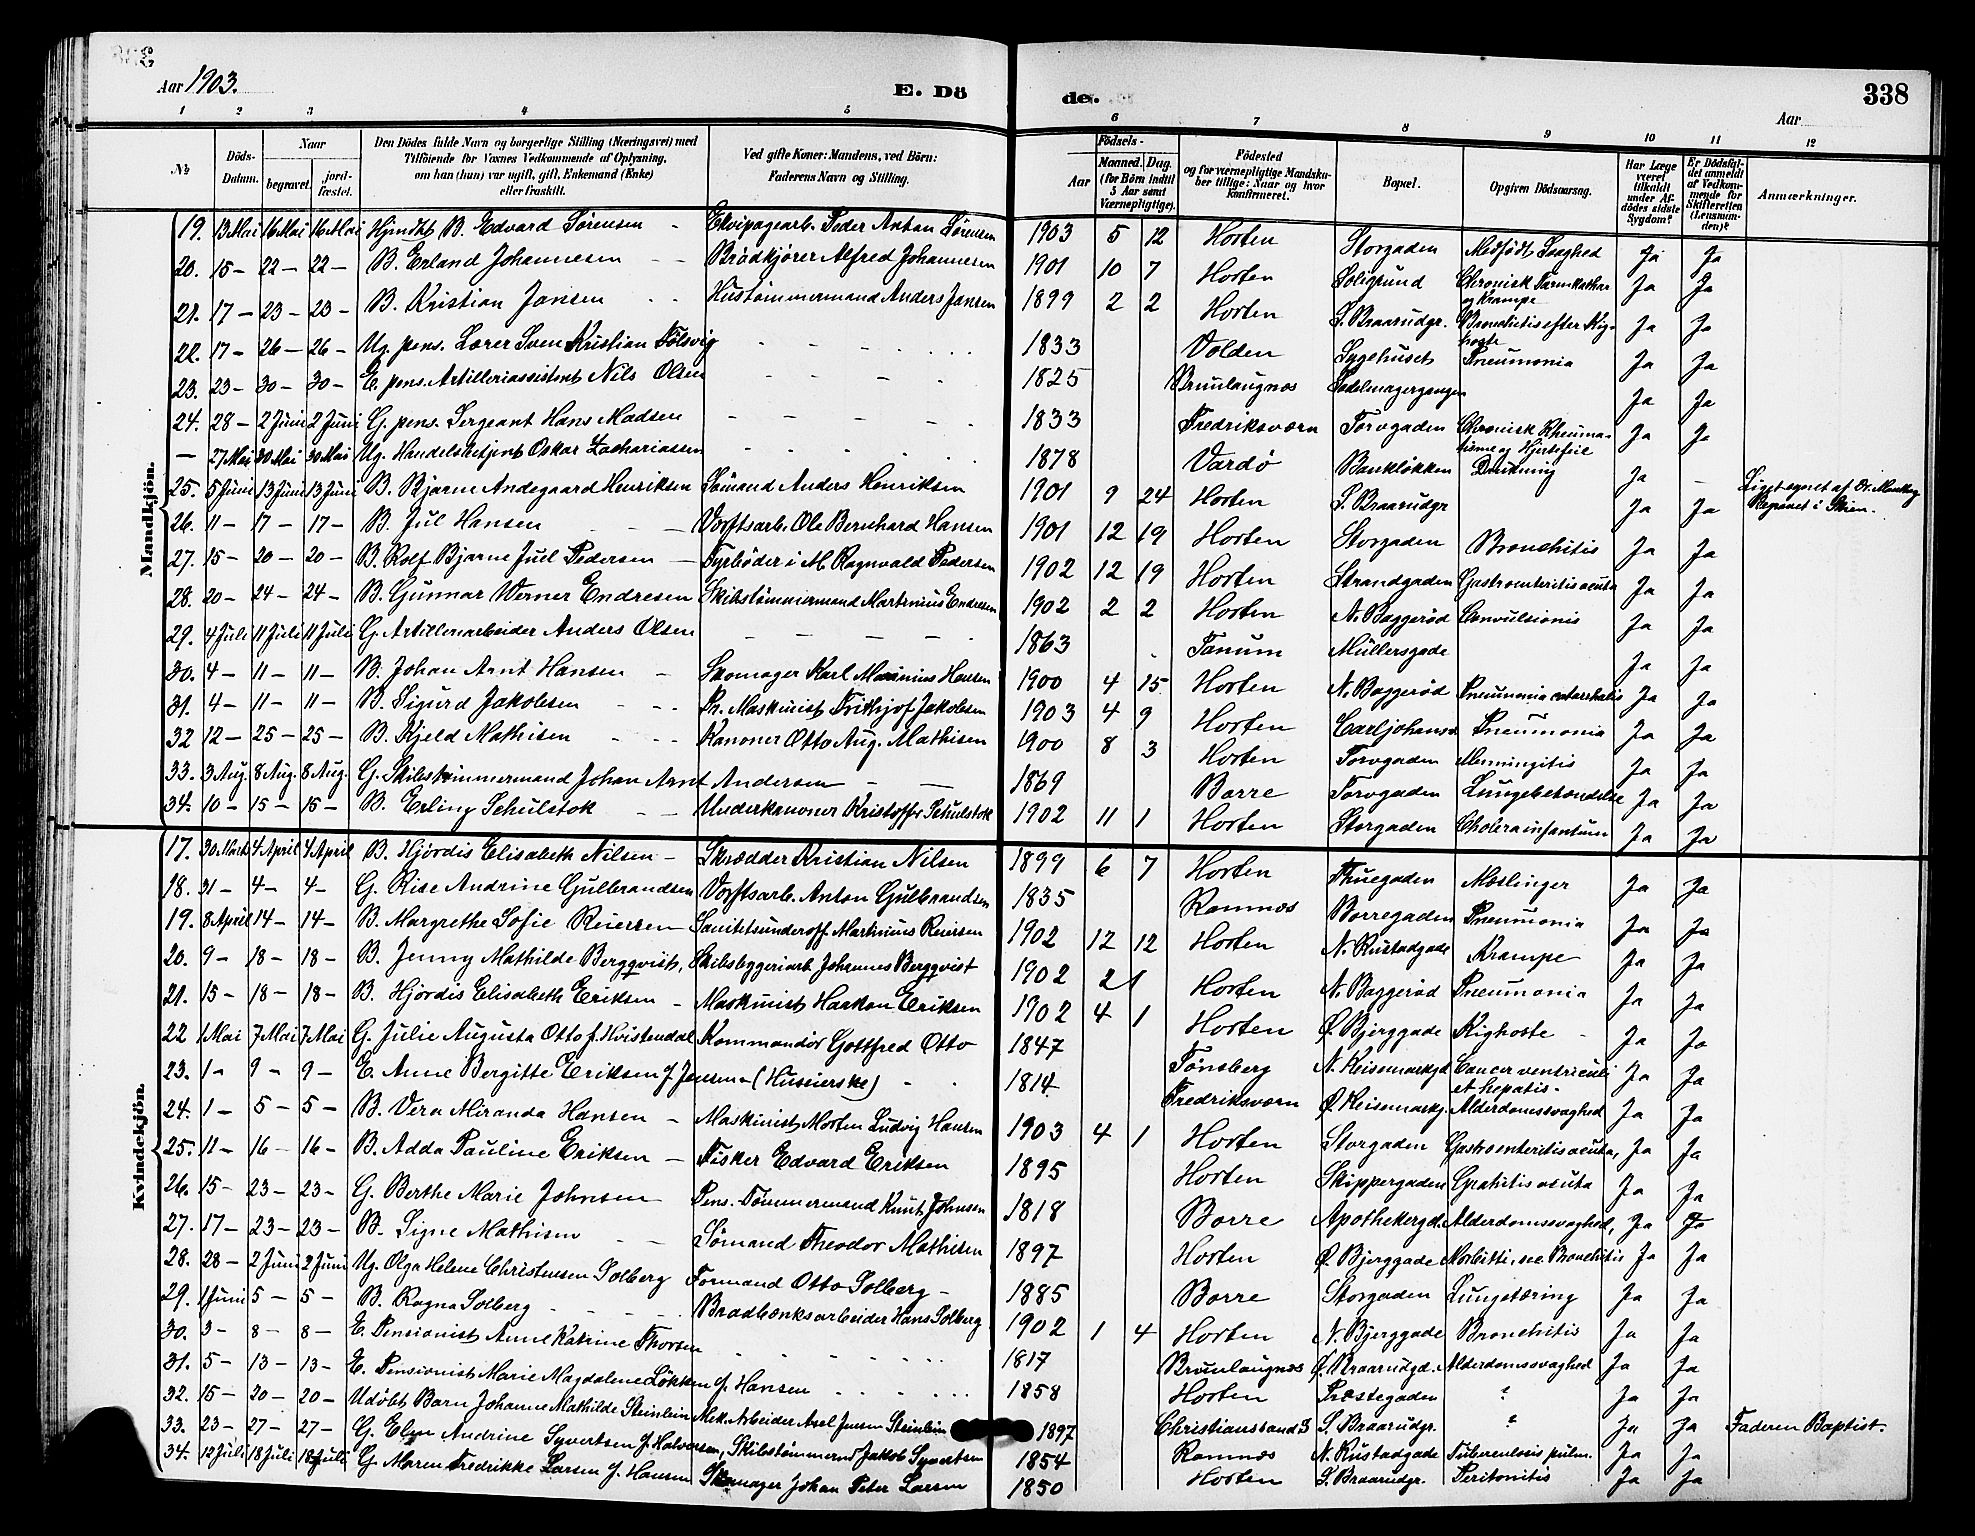 Aar 1903.
E. Dö
de.
Aar
338
1 2 3 4 5 6 7 8 9 10 11 12
№ Döds-Datum. Naar begravet. jordfæstet. Den Dödes fulde Navn og borgerlige Stilling (Næringsvei) med Tilföiende for Voxnes Vedkommende af Oplysning, om han (hun) var ugift, gift, Enkemand (Enke) eller fraskilt. Ved gifte Koner: Mandens, ved Börn: Faderens Navn og Stilling. Aar Födsels- Maaned. Dag. (for Börn indtil 5 Aar samt Værnepligtige). Födested og for værnepligtige Mandskaber tillige: Naar og hvor konfirmeret. Bopæl. Opgiven Dödsaarsag. Har Læge været tilkaldt under Afdödes sidste Sygdom? Er Dödsfaldet anmeldt af Vedkommende for Skifteretten (Lensmanden)? Anmærkninger.
Mandkjön.
19. 13 Mai 16 Mai 16 Mai Hjmdbt B. Edvard Sörensen - Ekvipagearb. Peder Anton Sörensen 1903 5 12 Horten Storgaden Medfödt Svaghed Ja Ja
20. 15 - 22 - 22 - B. Erland Johannesen - - Brödkjörer Alfred Johannesen 1901 10 7 Horten Soligrund Chronisk Tarmkathar og Krampe Ja Ja
21. 17 - 23 - 23 - B. Kristian Jansen - - Hustömmermand Anders Jansen 1899 2 2 Horten S. Braarudgr. Bronchitis efter Kighoste Ja Ja
22. 17 - 26 - 26 - Ug. pens. Lærer Sven Kristian Tölsvig 1833 Volden Sygehuset Pneumonia Ja Ja
23. 23 - 30 - 30 - E. pens. Artilleriassistent Nils Olsen 1825 Brunlaugnæs Sadelmagergangen Ja Ja
24. 28 - 2 Juni 2 Juni G. pens. Sergeant Hans Madsen 1833 Fredriksværn Torvgaden Chronisk Rheumatisme og Hjertefeil Ja Ja
- 27 Mai 30 Mai 30 Mai Ug. Handelsbetjent Oskar Zachariassen 1878 Vardö Bankløkken Drukning Ja - Liget egnet af Dr. Repanet i Skien.
25. 5 Juni 13 Juni 13 Juni B. Bjarne Andegaard Henriksen Sömand Anders Henriksen 1901 9 24 Horten S. Braarudgr Ja Ja
26. 11 - 17 - 17 - B. Jul Hansen - Værftsarb. Ole Bernhard Hansen 1901 12 19 Horten Storgaden Bronchitis Ja Ja
27. 15 - 20 - 20 - B. Rolf Bjarne Juel Pedersen - Fyrböder i M. Ragnvald Pedersen 1902 12 19 Horten Strandgaden Gastroenteritis acuta Ja Ja
28. 20 - 24 - 24 - B. Gunnar Werner Endresen Skibstömmermand Martinius Endresen 1902 2 2 Horten N. Baggeröd Convulsionis Ja Ja
29. 4 Juli 11 Juli 11 Juli G. Artilleriarbeider Anders Olsen 1863 Tanum Müllersgade Ja Ja
30. 4 - 11 - 11 - B. Johan Arnt Hansen - Skomager Karl Marinius Hansen 1900 4 15 Horten N. Baggeröd Pneumonia catarrhalis Ja Ja
31. 4 - 11 - 11 - B. Sigurd Jakobsen - - Pr. Maskinist Frithjof Jakobsen 1903 4 9 Horten Carljohansv Pneumonia Ja Ja
32 12 - 25 - 25 - B. Kjeld Mathisen - - Kanoner Otto Aug. Mathisen 1900 8 3 Horten Torvgaden Menningitis Ja Ja
33. 3 Aug. 8 Aug. 8 Aug. G. Skibstömmermand Johan Arnt Andersen - - 1869 Borre Torvgaden Lungebetændelse Ja Ja
34. 10 - 15 - 15 - B. Erling Schulstok - - Underkanoner Kristoffer Schulstok 1902 11 1 Horten Storgaden Cholera infantum Ja Ja
Kvindekjön.
17. 30 Marts 4 April 4 April B. Hjördis Elisabeth Nilsen - Skrædder Kristian Nilsen 1899 6 7 Horten Thuegaden Meslinger Ja Ja
18. 31 - 4 - 4 - G. Rise Andrine Gulbrandsen Værftsarb. Anton Gulbrandsen 1835 Ramnæs Borregaden Pneumonia Ja Ja
19. 8 April 14 - 14 - B. Margrethe Sofie Reiersen - Sanitetsunderoff. Martinius Reiersen 1902 12 12 Horten N. Rustadgade Krampe Ja Ja
20. 9 - 18 - 18 - B. Jenny Mathilde Bergqvist, Skibsbyggeriarb. Johannes Bergqvist 1902 2 1 Horten N. Baggeröd Pneumonia Ja Ja
21. 15 - 18 - 18 - B. Hjördis Elisabeth Eriksen - Maskinist Haakon Eriksen 1902 4 1 Horten Ø. Bjerggade Kighoste - Ja Ja
22 1 Mai 7 Mai 7 Mai G. Julie Augusta Otto f. Hvistendal Kommandör Gottfred Otto 1847 Tönsberg N. Keisemarkgd Cancer ventriculi et hepatis - Ja Ja
23. 1 - 9 - 9 - E. Anne Bergitte Eriksen f. Jensen (Huseierske) - - 1814 Fredriksværn Ø. Keisemarkg. Alderdomssvaghed Ja Ja
24. 1 - 5 - 5 - B. Vera Miranda Hansen - Maskinist Morten Ludvig Hansen 1903 4 1 Horten Storgaden Gastroenteritis acuta, Ja Ja
25. 11 - 16 - 16 - B. Adda Pauline Eriksen - Fisker Edvard Eriksen 1895 Horten Skippergaden acuta Ja Ja
26. 15 - 23 - 23 - G. Berthe Marie Johnsen - Pens. Tömmermand Knut Johnsen 1818 Borre Apothekergd. Alderdomssvaghed, Ja Ja
27. 17 - 23 - 23 - B. Signe Mathisen - - Sömand Theodor Mathisen 1897 Horten Ø. Bjerggade Bronchitis Ja Ja
28. 28 - 2 Juni 2 Juni Ug. Olga Helene Christensen Solberg Formand Otto Solberg - 1885 Borre Storgaden Lungetæring Ja Ja
29. 1 Juni 5 - 5 - B. Ragna Solberg - - - - Brödbænksarbeider Hans Solberg 1902 1 4 Horten N. Bjerggade Bronchitis Ja Ja
30. 3 - 8 - 8 - E. Pensionist Anne Katrine Thorsen 1817 Brunlaugnæs Ø. Braarudgd. Alderdomssvaghed Ja Ja
31. 5 - 13 - 13 - E. Pensionist Marie Magdalene Løkken f. Hansen 1858 Horten Præstegaden ? Ja Ja
32. 15 - 20 - 20 - Udöbt Barn Johanne Mathilde Steinlein Mek. Arbeider Axel Jensen Steinlein 1897 Christianssand S. Braarudgr. ? Ja Ja Faderen Baptist.
33. 23 - 27 - 27 - G. Elen Andrine Syvertsen f. Halvorsen, Skibstömmermd Jakob Syvertsen 1854 Ramnæs N. Rustadgade Tuberculosis pulm. Ja Ja
34. 12 Juli 18 Juli 18 Juli G. Maren Fredrikke Larsen f. Hansen Skomager Johan Peter Larsen 1850 Horten S. Braarudgr. Peritonitis Ja Ja